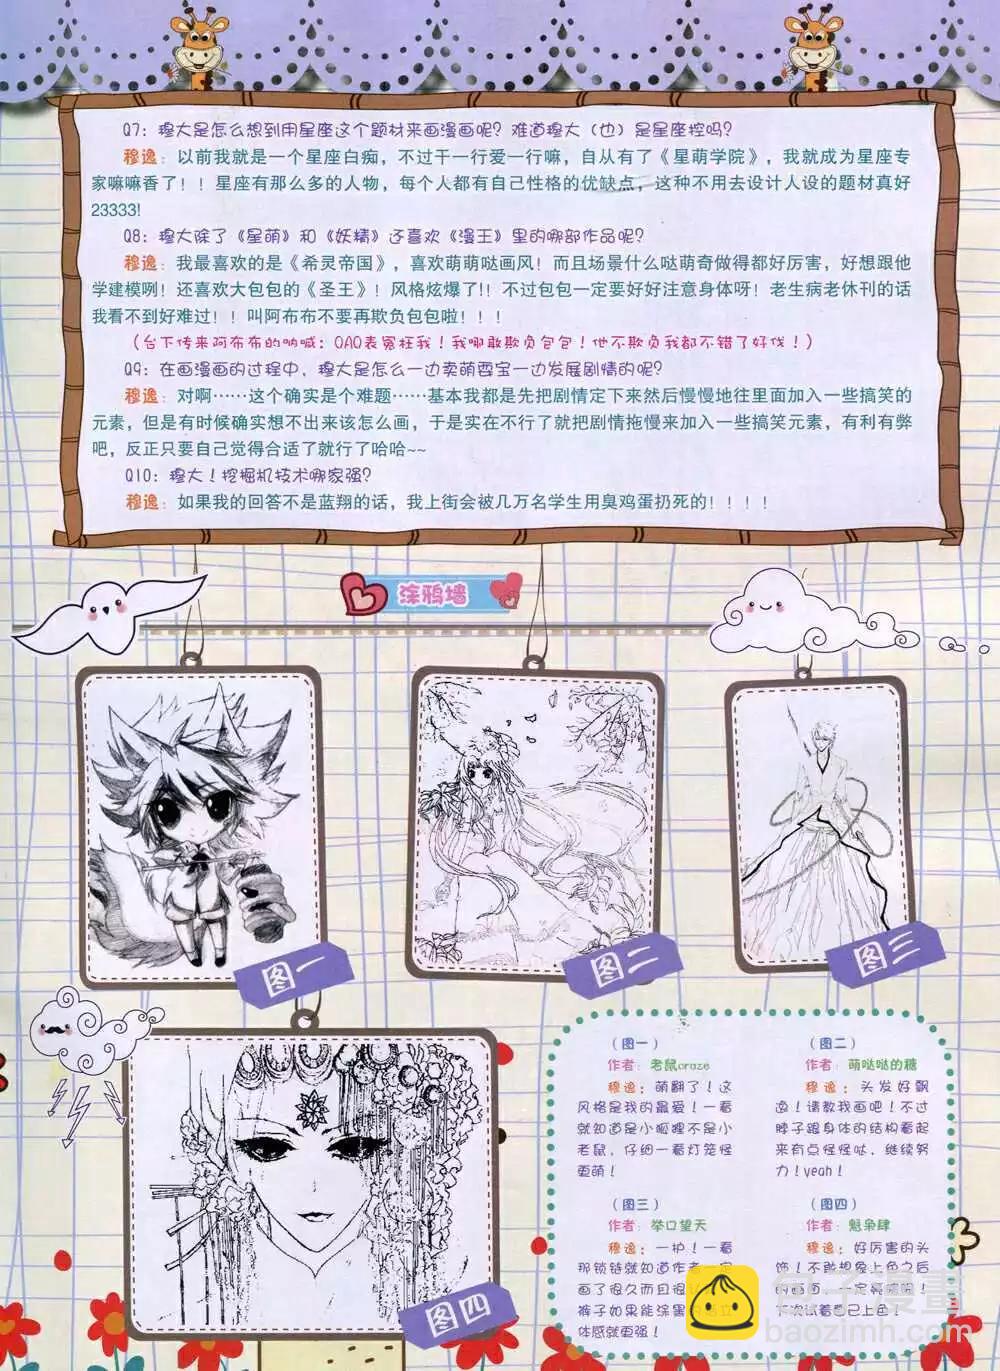 Q7：穆大是怎么想到用星座这个题材来画漫画呢？难道穆大（也）是星座控吗？
穆逸：以前我就是一个星座白痴，不过干一行爱一行嘛，自从有了《星萌学院》，我就成为星座专
家嘛嘛香了！！星座有那么多的人物，每个人都有自己性格的优缺点，这种不用去设计人设的题材真好
23333!
Q8：穆大除了《星萌》和《妖精》还喜欢《漫王》里的哪部作品呢？
穆逸：我最喜欢的是《希灵帝国》，喜欢萌萌哒画风！而且场景什么哒萌奇做得都好厉害，好想跟他
学建模咧！还喜欢大包包的《圣王》！风格炫爆了!！不过包包一定要好好注意身体呀！老生病老休刊的话
我看不到好难过！！叫阿布布不要再欺负包包啦！！！
（台下传来阿布布的呐喊：QAQ表冤枉我！我哪敢欺负包包！他不欺负我都不错了好伐！）
Q9：在画漫画的过程中，穆大是怎么一边卖萌耍宝一边发展剧情的呢？
穆逸：对啊……这个确实是个难题……基本我都是先把剧情定下来然后慢慢地往里面加入一些搞笑的
元素，但是有时候确实想不出来该怎么画，于是实在不行了就把剧情拖慢来加入一些搞笑元素，有利有弊
吧，反正只要自己觉得合适了就行了哈哈~~
Q10：穆大！挖掘机技术哪家强？
穆逸：如果我的回答不是蓝翔的话，我上街会被几万名学生用臭鸡蛋扔死的！！！！
涂鸦墙
图一
图二
图三
图四
（图一）
作者：老鼠craze
穆逸：萌翻了！这
风格是我的最爱！一看
就知道是小狐狸不是小
老鼠，仔细一看灯笼怪
更萌！
（图二）
作者：萌哒哒的糖
穆逸：头发好飘
逸！请教我画吧！不过
脖子跟身体的结构看起
来有点怪怪哒，继续努
力！yeah！
（图三）
作者：举口望天
穆逸：一护！一看
那锁链就知道作者一定
画了很久而且很
裤子如果能涂黑的话立
体感就更强！
（图四）
作者：魁枭肆
穆逸：好厉害的头
饰！不敢想象上色之后
的画面，一定亮瞎眼！
下次试着自己上色！
包子漫畫
baozimh.com